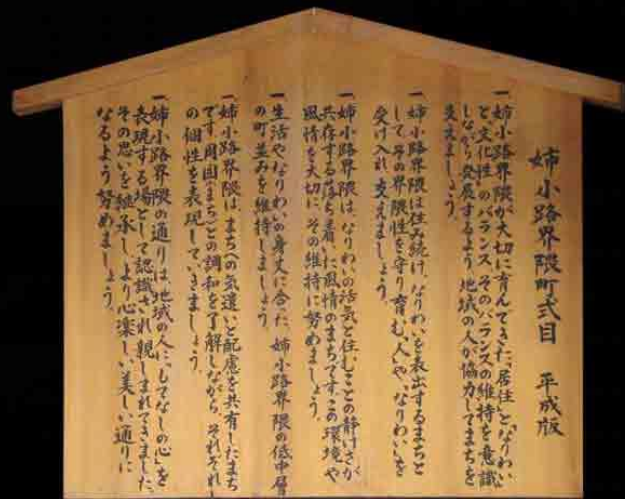 姉小路界隈町式目 平成版
一、姉小路界隈が大切に育んできた、「居住」と「なりわい」
と「文化性」のバランス、そのバランスの維持を意識
しながら発展するよう、地域の人が協力してまちを
支えましょう。
一、姉小路界隈は住み続け、なりわいを表出するまちと
して、その界隈性を守り育む「人」や「なりわい」を
受け入れ、支えましょう。
一、姉小路界隈は、なりわいの活気と住むことの静けさが
共存する落ち着いた風情のまちです。この環境や
風情を大切に、その維持に努めましょう。
一、生活やなりわいの身丈に合った、姉小路界隈の低中層
の町並みを維持しましょう。
一、姉小路界隈は、まちへの気遣いと配慮を共有したまち
です。周囲(まち)との調和を了解しながら、それぞれ
の個性を表現していきましょう。
一、姉小路界隈の通りは、地域の人に、「もてなしの心」を
表現する場として認識され親しまれてきました。
その思いを継承し、より心楽しい美しい通りに
なるよう努めましょう。